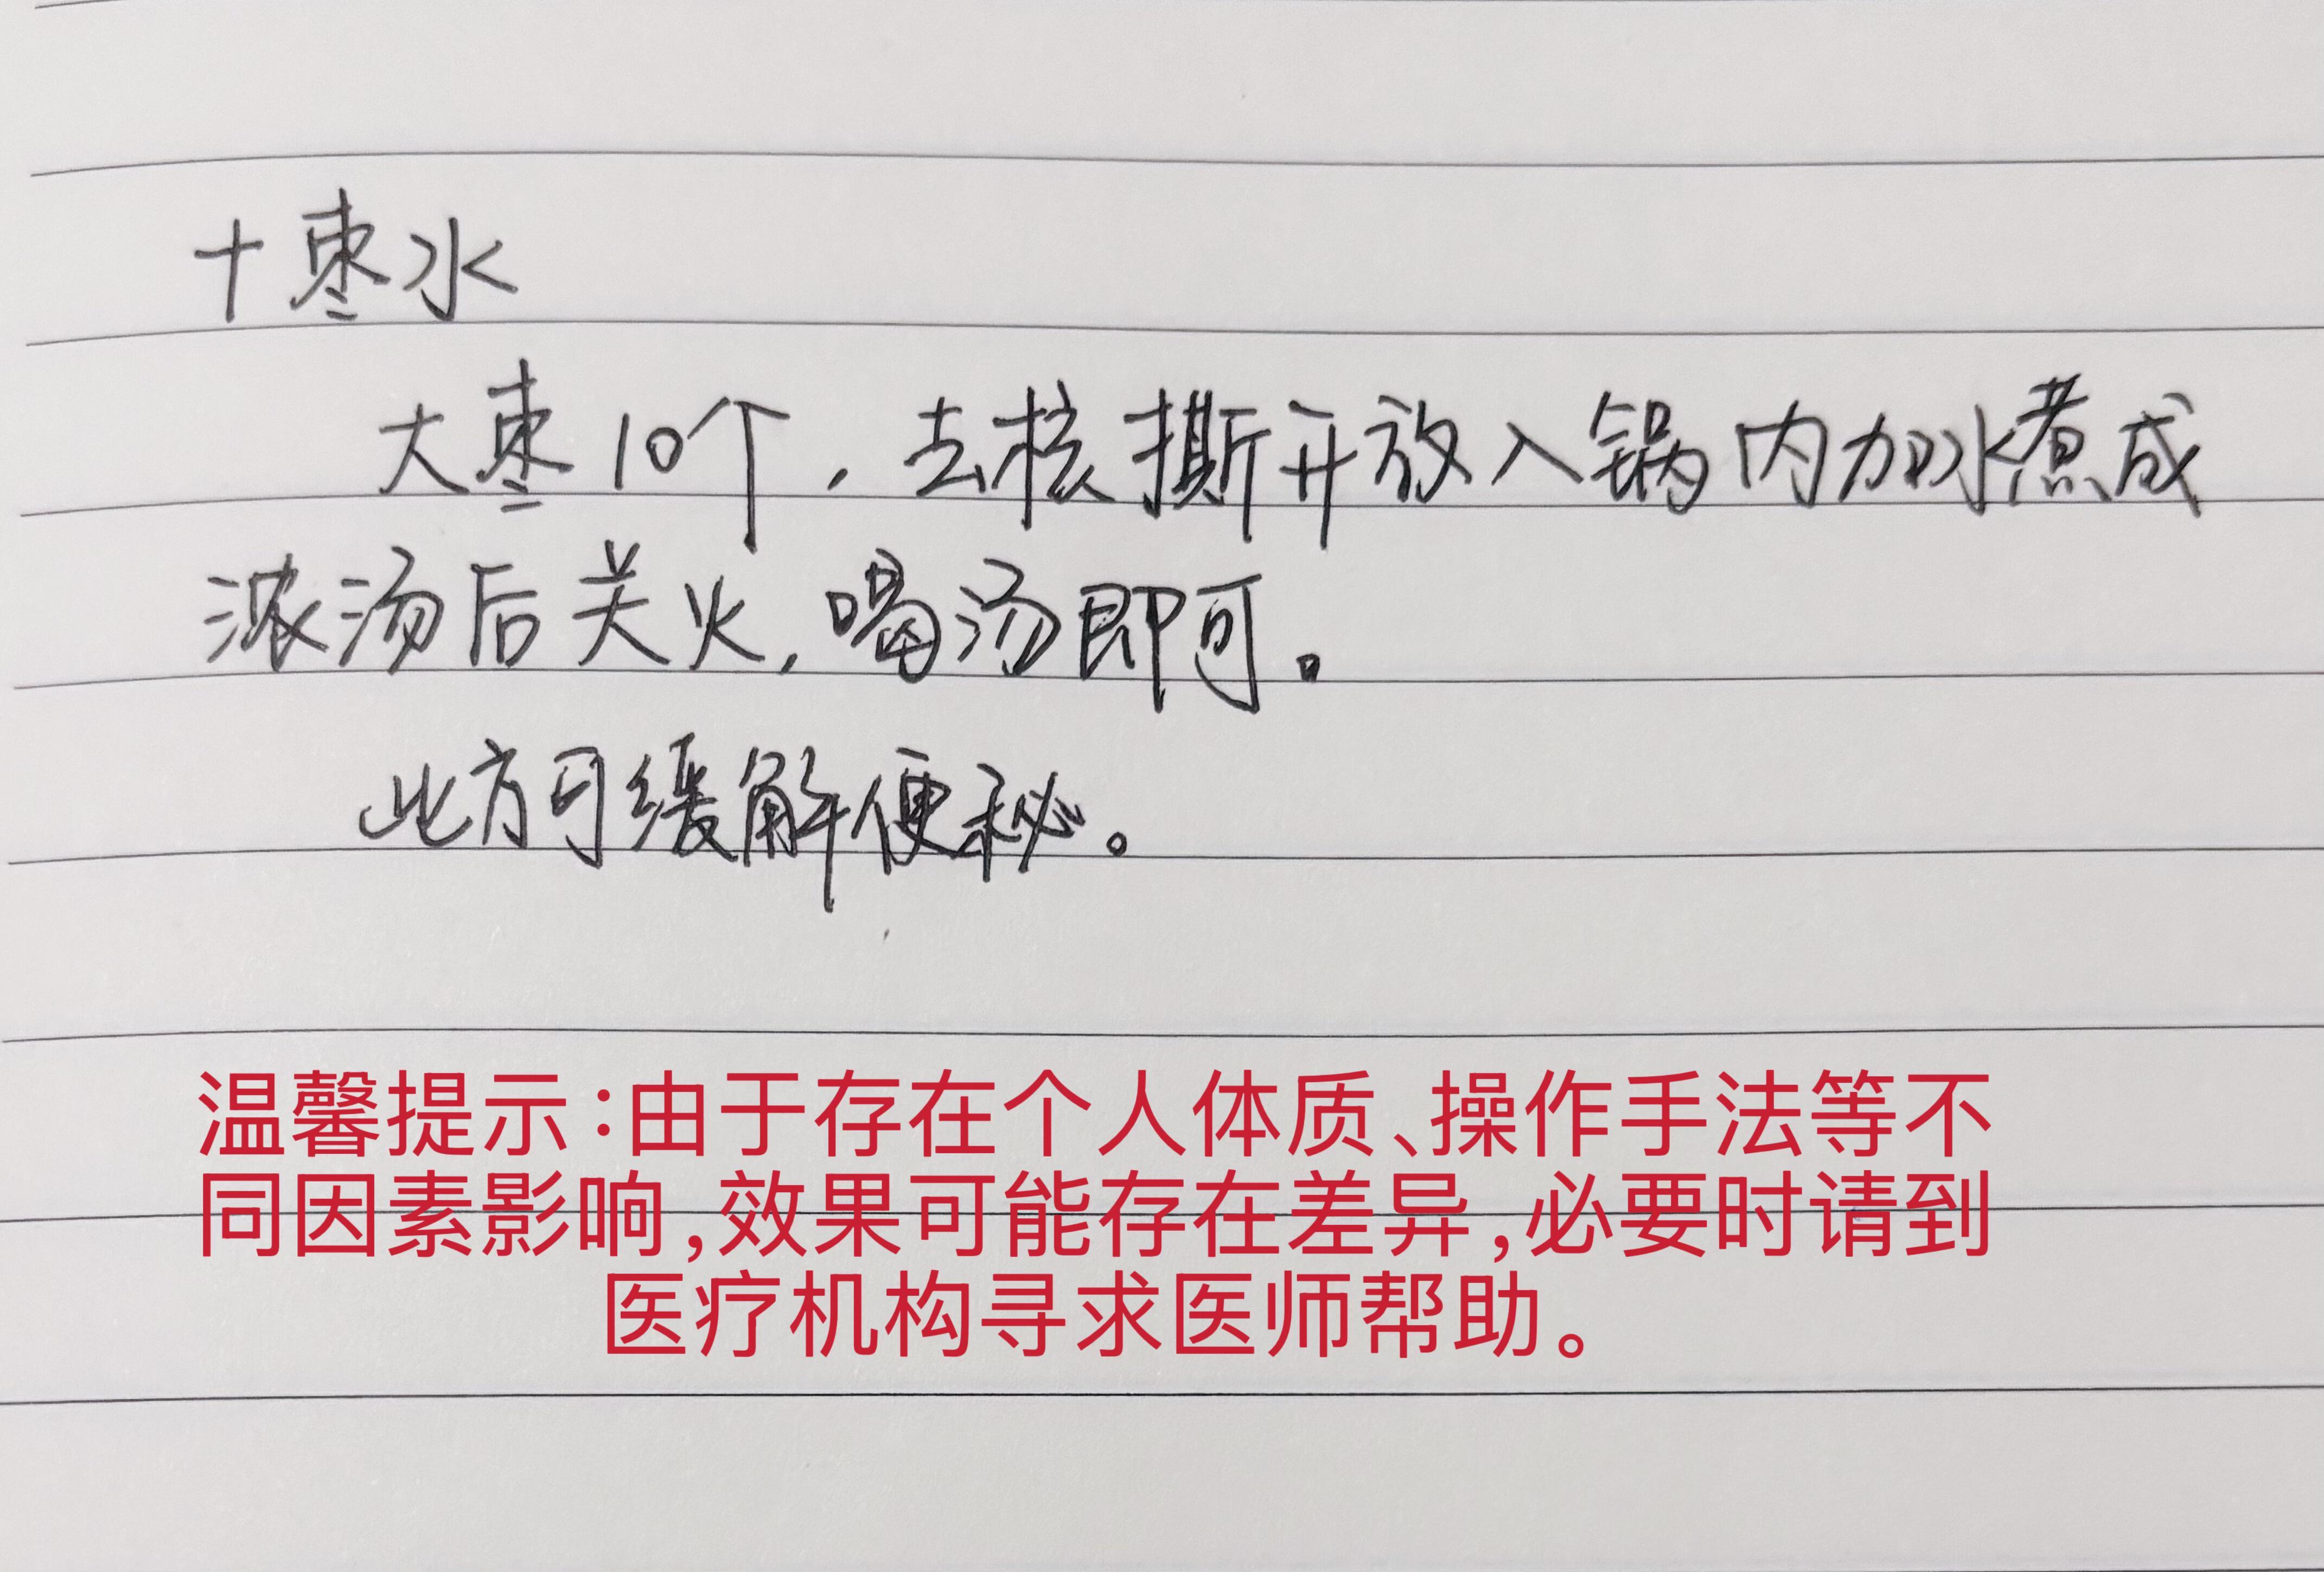 十枣水
大枣10个，去核撕开放入锅内加水煮成
浓汤后关火，喝汤即可。
此方可缓解便秘。
温馨提示：由于存在个人体质、操作手法等不
同因素影响，效果可能存在差异，必要时请到
医疗机构寻求医师帮助。